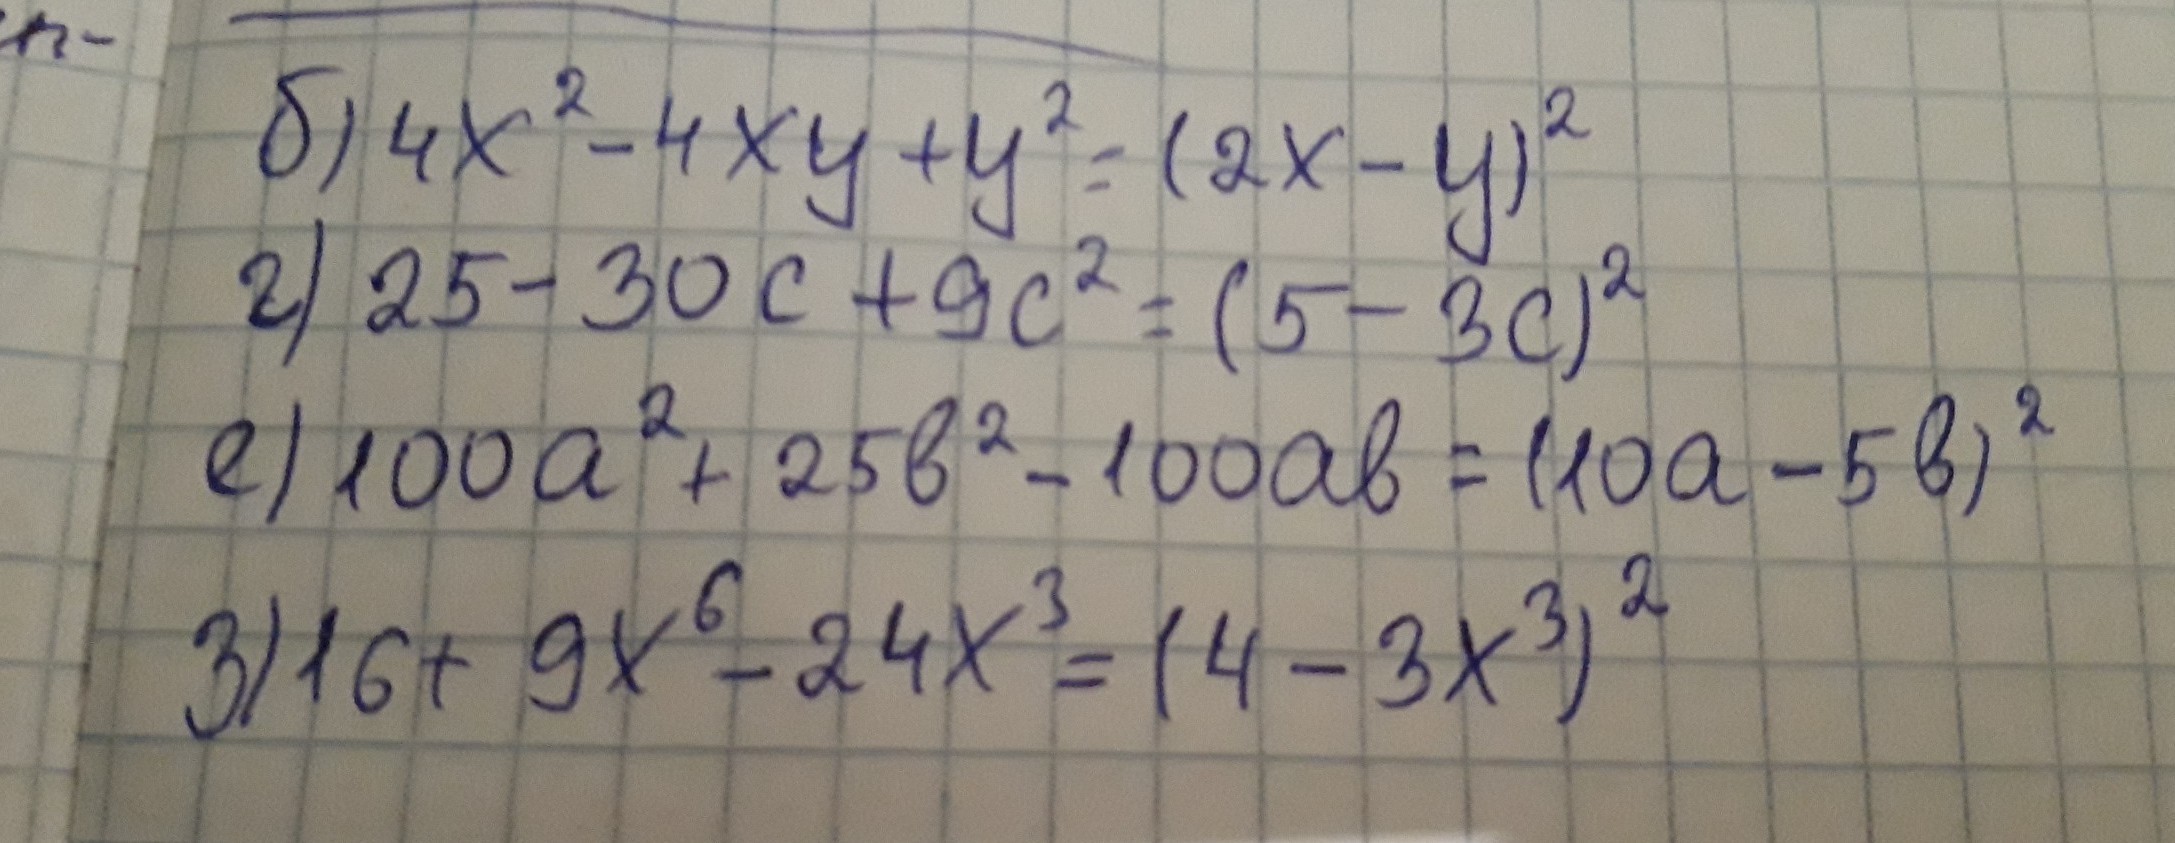 б) 4x² - 4xy + y² = (2x - y)²
г) 25 - 30c + 9c² = (5 - 3c)²
е) 100a² + 25b² - 100ab = (10a - 5b)²
з) 16 + 9x⁶ - 24x³ = (4 - 3x³)²